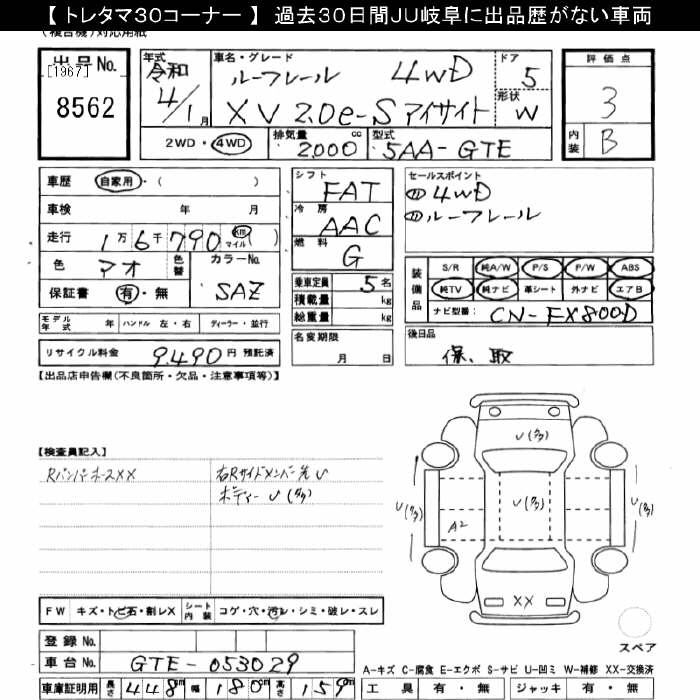 【トレタマ30コーナー】 過去30日間JU岐阜に出品歴がない車両
(複合機)対応用紙
出品No. [1967] 8562
年式 令和 4/1月
車名・グレード ルーフレール 4WD
XV 2.0e-S アイサイト
ドア 5
形状 W
評価点 3
内装 B
2WD・4WD 排気量 2000 cc 型式 5AA-GTE
車歴 自家用・( )
車検 年 月
走行 1万6千790 km マイル ( )
色 アオ 色替 カラーNo. SAZ
保証書 有・無
モデル年式 年 ハンドル 左・右 ディーラー・並行
リサイクル料金 9490円 預託済
シフト FAT
冷房 AAC
燃料 G
乗車定員 5名
積載量 kg
総重量 kg
名変期限 月 日
セールスポイント
① 4WD
② ルーフレール
装備品 S/R 純A/W P/S P/W ABS
純TV 純ナビ 革シート 外ナビ エアB
ナビ型番: CN-FX800D
後日品 保、取
【出品店申告欄(不良箇所・欠品・注意事項等)】
【検査員記入】
Rバンパーホースメント××
右Rサイドメンバー先U
ボディーU(多)
U(多)
U(多)
U(多)
U(多)
A2
XX
スペア
FW キズ・トビ石・割レX シート内装 コゲ・穴・汚レ・シミ・破レ・スレ
登録No.
車台No. GTE-053029
車庫証明用 長さ 448cm 幅 180cm 高さ 159cm
A-キズ C-腐食 E-エクボ S-サビ U-凹ミ W-補修 XX-交換済
工具 有・無 ジャッキ 有・無